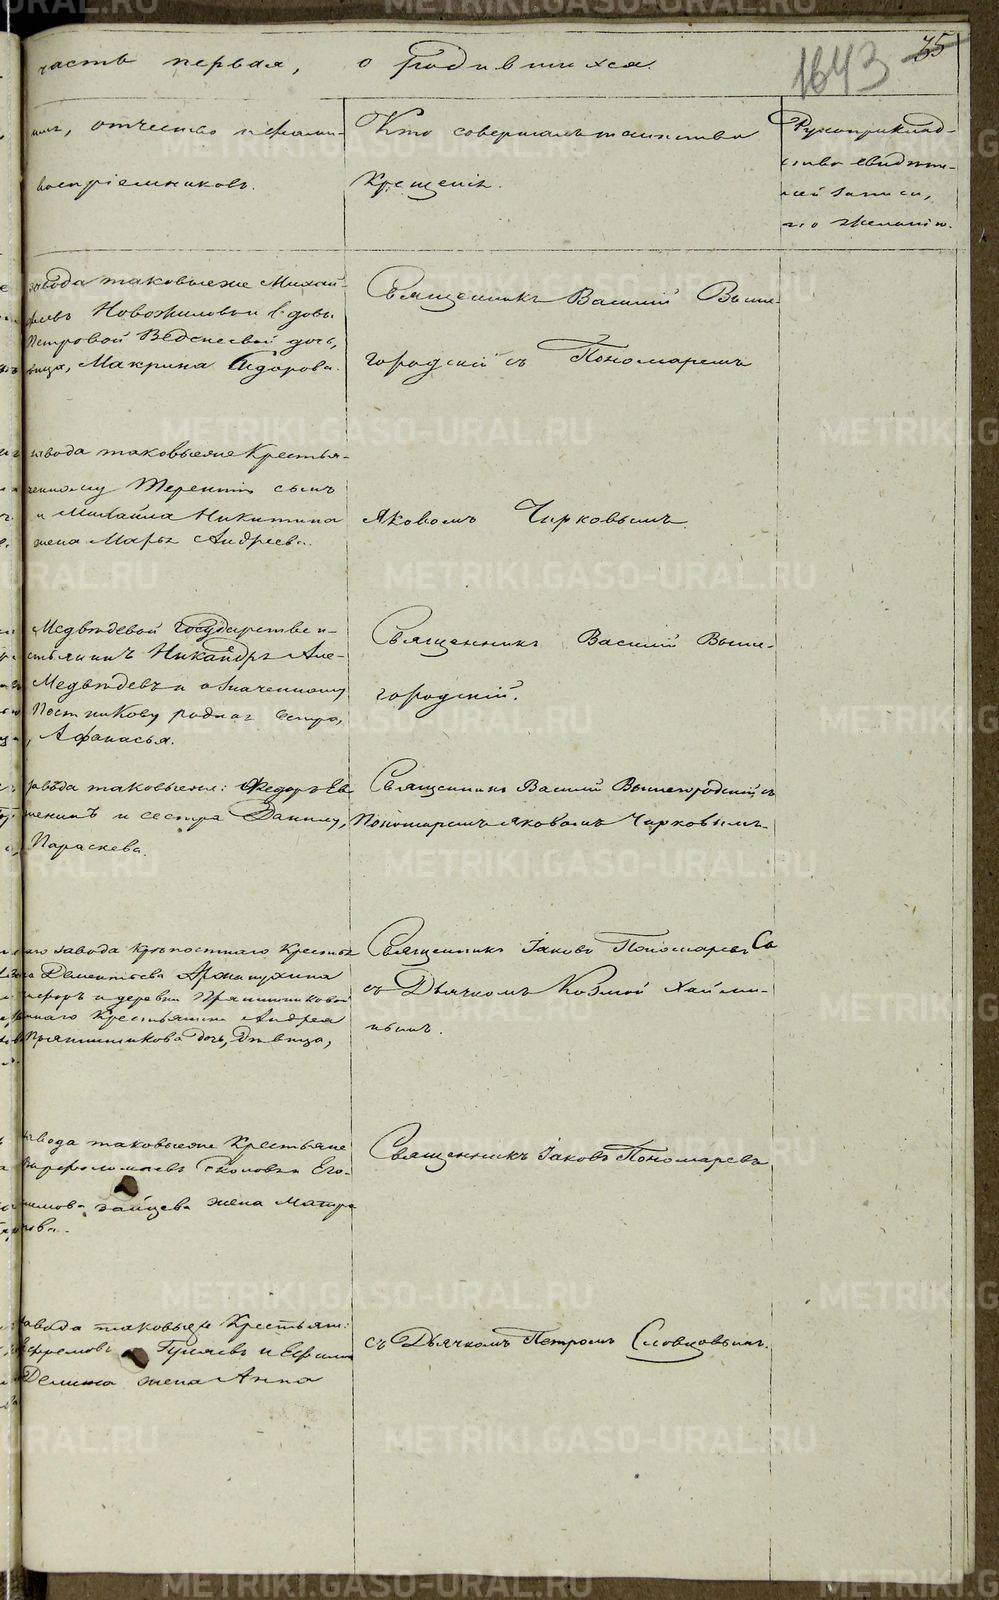 часть первая, о родившихся.
1643
75
имя, отчество и фами-
воспріемниковъ.
Кто совершалъ таинство
Крещенія.
Рукоприклад-
ство свидѣте-
лей записи,
по желанію.
завода таковыеже Михай-
Новожиловъ и вдовы
Петровой дочь,
вица, Макрина Сидорова.
Священникъ Василий Выше-
городскій съ Пономаремъ
завода таковыеже Крестья-
Терентій сынъ
и Михайла Никитина
жена Марѳа Андреева.
Яковомъ Чирковымъ.
Медвѣдевой Государствен-
стьянинъ Никандръ Але-
Медвѣдевъ и означенному
Постникову родная сестра,
Афанасья.
Священникъ Василій Выше-
городскій.
завода таковыеже: Федоръ Ев-
и сестра Данилу,
Параскева.
Священникъ Василій Вышегородскій съ
Пономаремъ Яковомъ Чирковымъ.
завода крѣпостнаго Крестья
Дементьева
и деревни Прянишниковой
Крестьянина Андрея
Прянишникова дочь, Дѣвица,
Священникъ Іаковъ Пономаревъ Со
съ Дьячкомъ Козмой Хайми-
нымъ.
завода таковыеже Крестьяне
Соколовъ и Его-
Зайцева жена Матро
Священникъ Іаковъ Пономаревъ
завода таковыеже Крестьян:
Ефремовъ Гуляевъ и Ефима
Демина жена Анна
съ Дьячкомъ Петромъ Словцовымъ.
METRIKI.GASO-URAL.RU